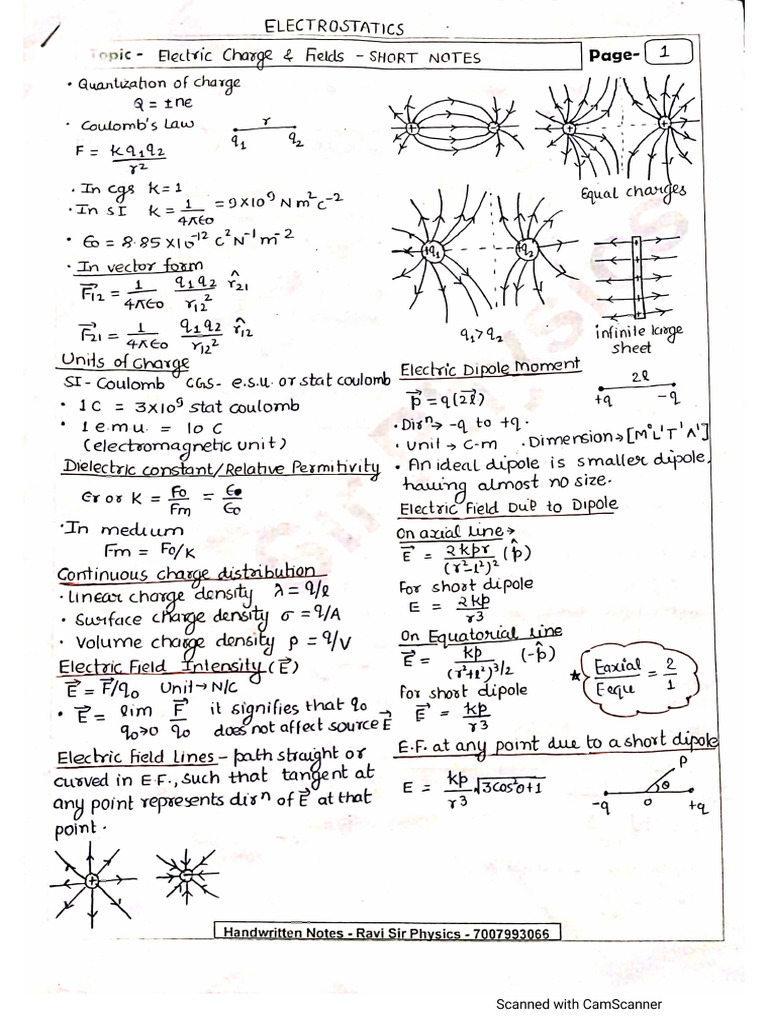 ELECTROSTATICS
Topic - Electric Charge & Fields - SHORT NOTES
Page- 1
• Quantization of charge
Q = ±ne
• Coulomb's Law
r
q₁ q₂
F = kq₁q₂/r²
• In cgs k=1
• In SI k = 1/4πϵ₀ = 9×10⁹ N m² C⁻²
• ϵ₀ = 8.85×10⁻¹² C² N⁻¹ m⁻²
• In vector form
F⃗₁₂ = 1/4πϵ₀ q₁q₂/r₁₂² r̂₂₁
F⃗₂₁ = 1/4πϵ₀ q₁q₂/r₁₂² r̂₁₂
Units of Charge
SI - Coulomb CGS - e.s.u. or stat coulomb
• 1 C = 3×10⁹ stat coulomb
• 1 e.m.u. = 10 C
(electromagnetic unit)
Dielectric constant/Relative Permitivity
ϵr or K = F₀/Fm = ϵ/ϵ₀
• In medium
Fm = F₀/K
Continuous charge distribution
• linear charge density λ = q/l
• Surface charge density σ = q/A
• Volume charge density ρ = q/V
Electric Field Intensity (E⃗)
E⃗ = F⃗/q₀ Unit → N/C
• E⃗ = lim q₀→0 F⃗/q₀ it signifies that q₀
does not affect source E⃗
Electric Field Lines - path straight or
curved in E.F., such that tangent at
any point represents dirⁿ of E⃗ at that
point.
+
-
+ -
+ +
Equal charges
+q₁ +q₂
q₁>q₂
+
+
+
+
+
infinite large
sheet
Electric Dipole Moment
2l
+q -q
p⃗ = q(2l⃗)
• Dirⁿ → -q to +q.
• Unit → C-m • Dimension → [M⁰L¹T¹A¹]
• An ideal dipole is smaller dipole,
having almost no size.
Electric Field Due to Dipole
On axial line →
E⃗ = 2kpr/(r²-l²)² (p̂)
For short dipole
E = 2kp/r³
On Equatorial line
E⃗ = kp/(r²+l²)^3/2 (-p̂)
for short dipole
E⃗ = kp/r³
★ Eaxial/Eequ = 2/1
E.F. at any point due to a short dipole
E = kp/r³ √3cos²θ+1
P
θ
-q O +q
Handwritten Notes - Ravi Sir Physics - 7007993066
Scanned with CamScanner